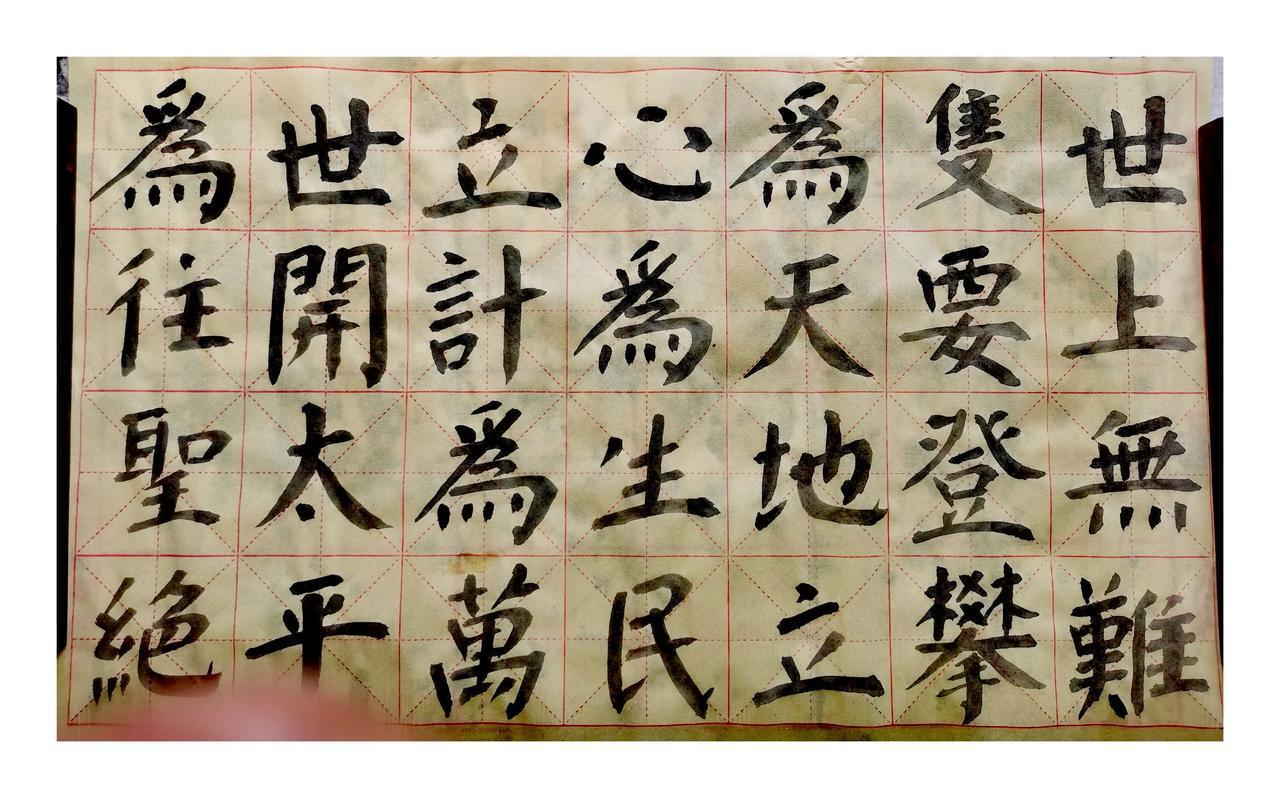 世上無難
隻要登攀
爲天地立
心爲生民
立計爲萬
世開太平
爲往聖絶